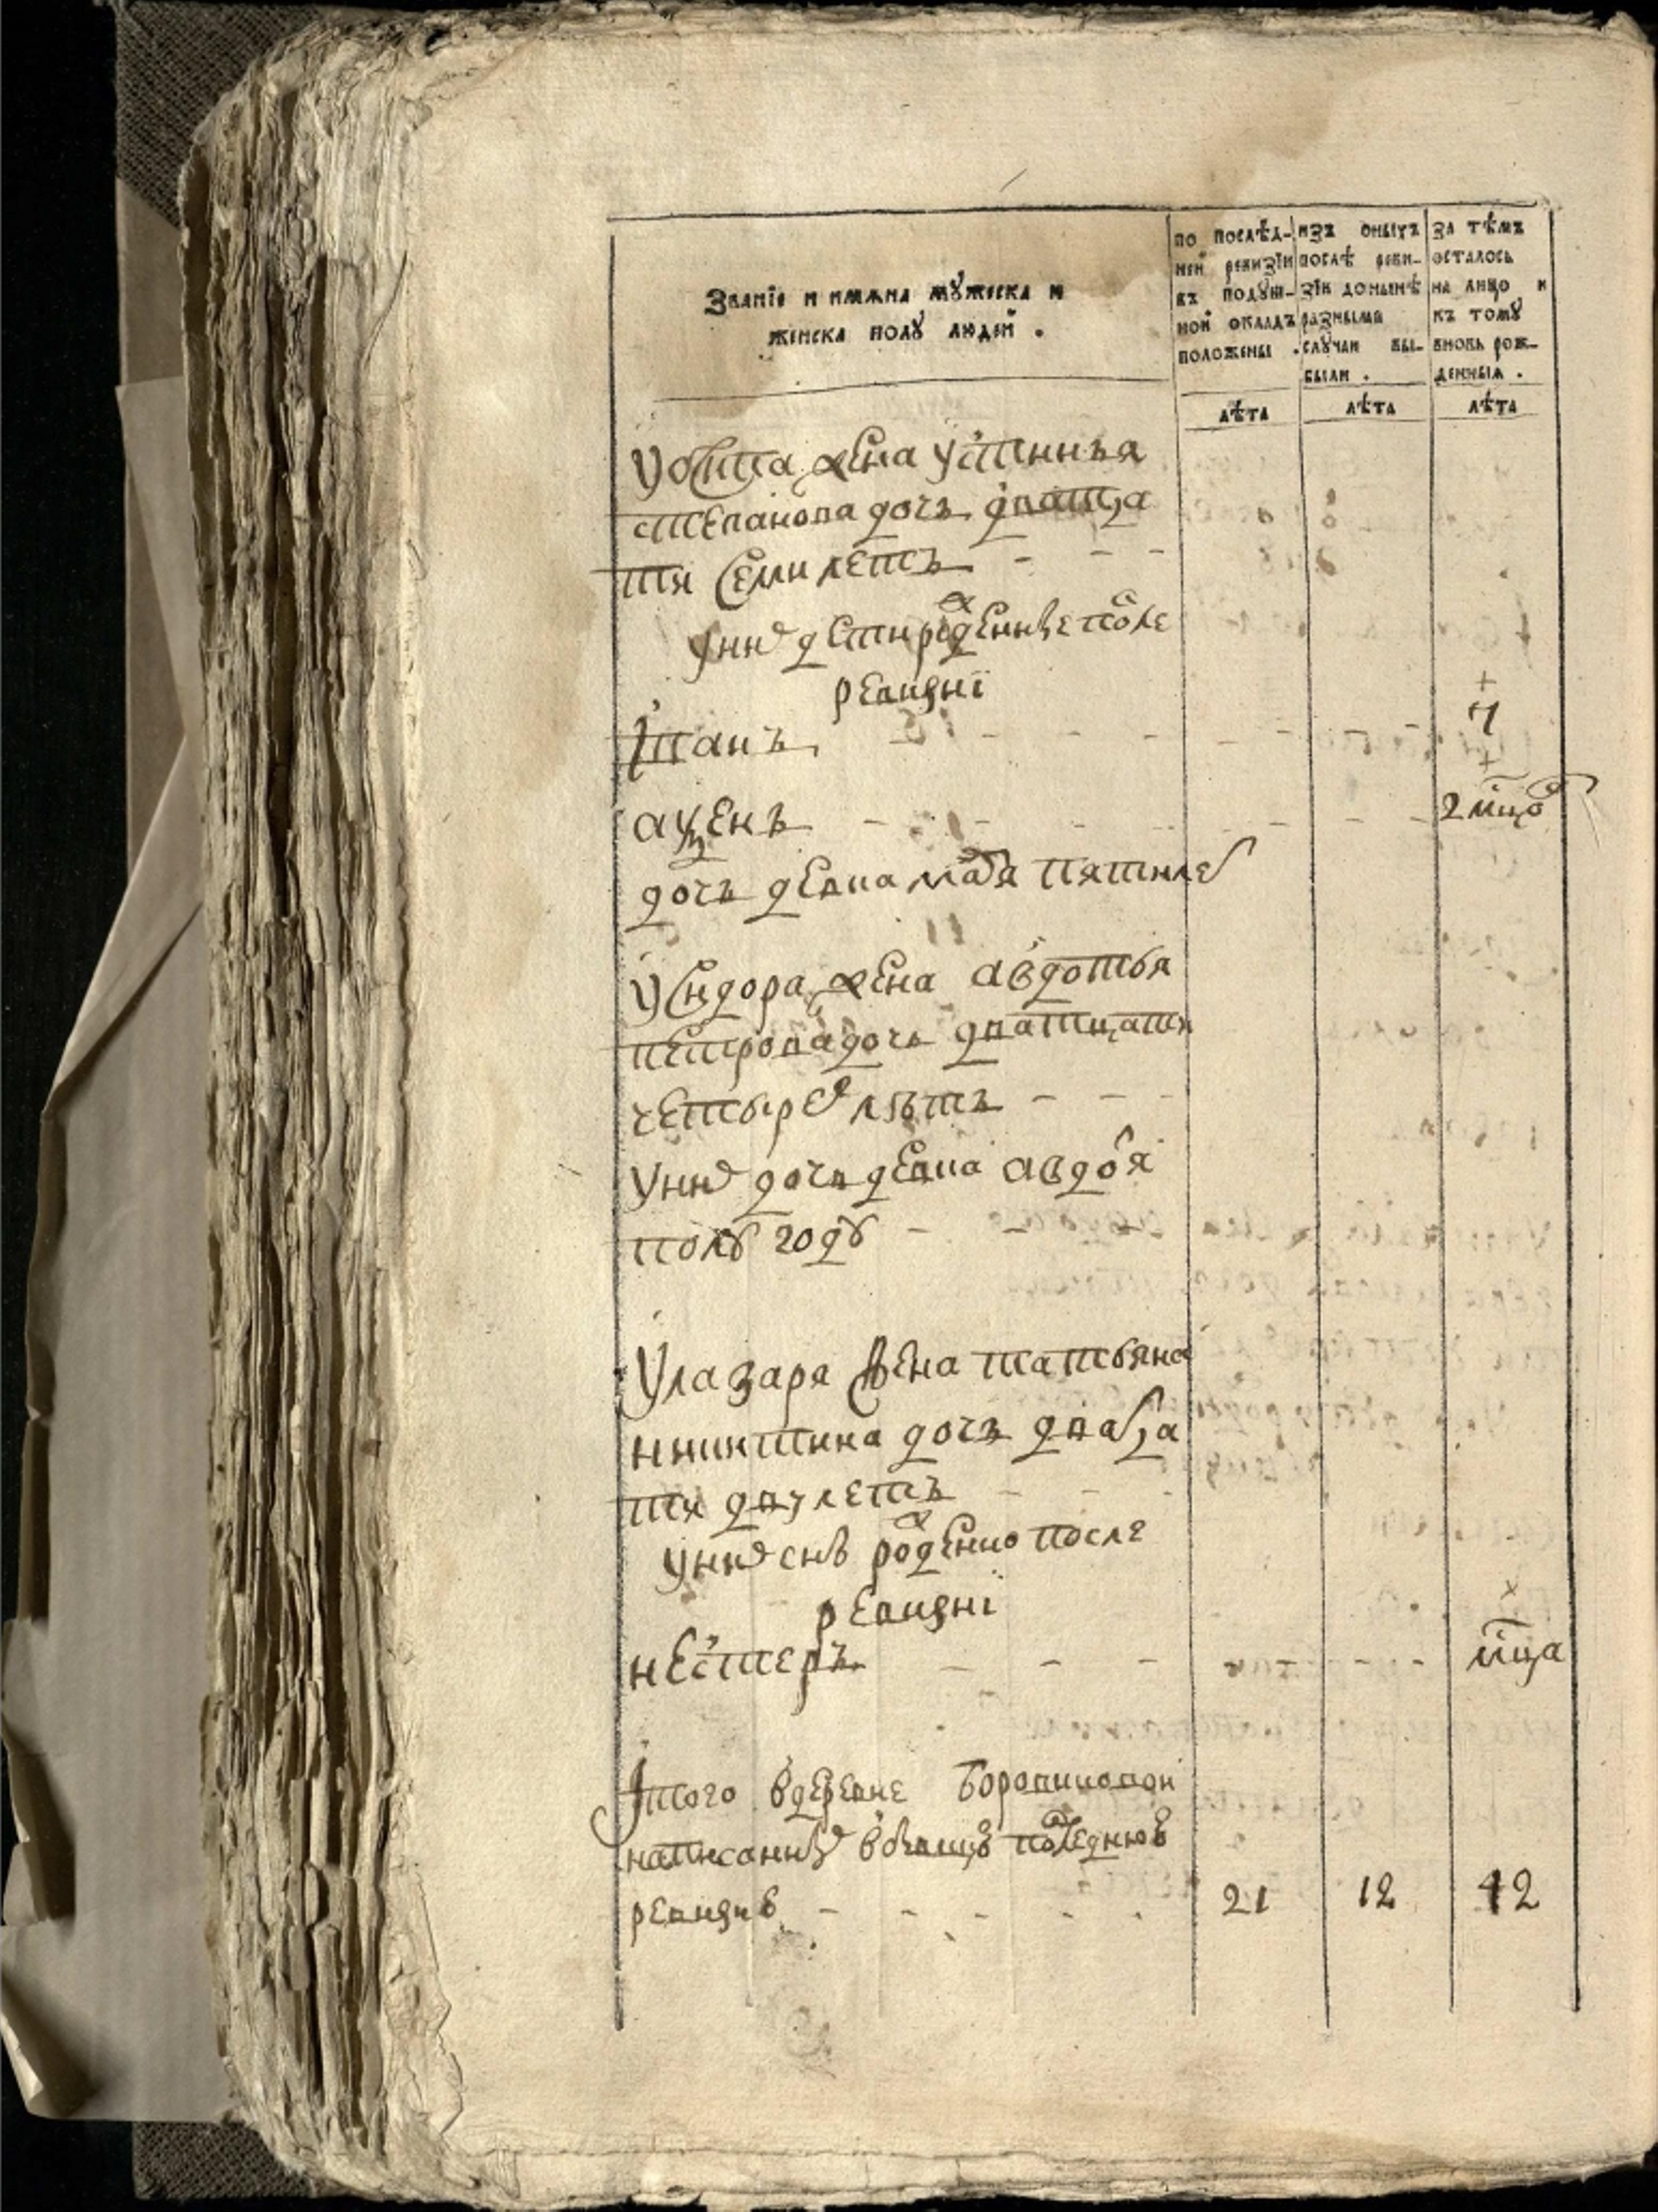 Званїе и имѧна мꙋжеска и
женска полꙋ людей .
по послѣд-
ней ревизїи
въ подꙋш-
ной окладъ
положены .
изъ оныхъ
послѣ реви-
зїи донынѣ
разными
слꙋчаи вы-
были .
за тѣмъ
осталось
на лицо и
къ томꙋ
вновь рож-
денныѧ .
лѣта
лѣта
лѣта
жена устинья
степанова дочь дватца
тя семи летъ
у них дети рожденные после
ревизиї
Іванъ 7
2 мцо
дочь девка пяти ле
у Сидора жена авдотья
петрова дочь дватцати
четырех лѣтъ
у них дочь девка авдотя
полу году
у лазаря жена татьяна
никитина дочь дватца
тя дву летъ
у них снъ рожденно после
ревизиї
нестеръ мца
Ітого в деревне
написанных последнюю
ревизию 21 12 12